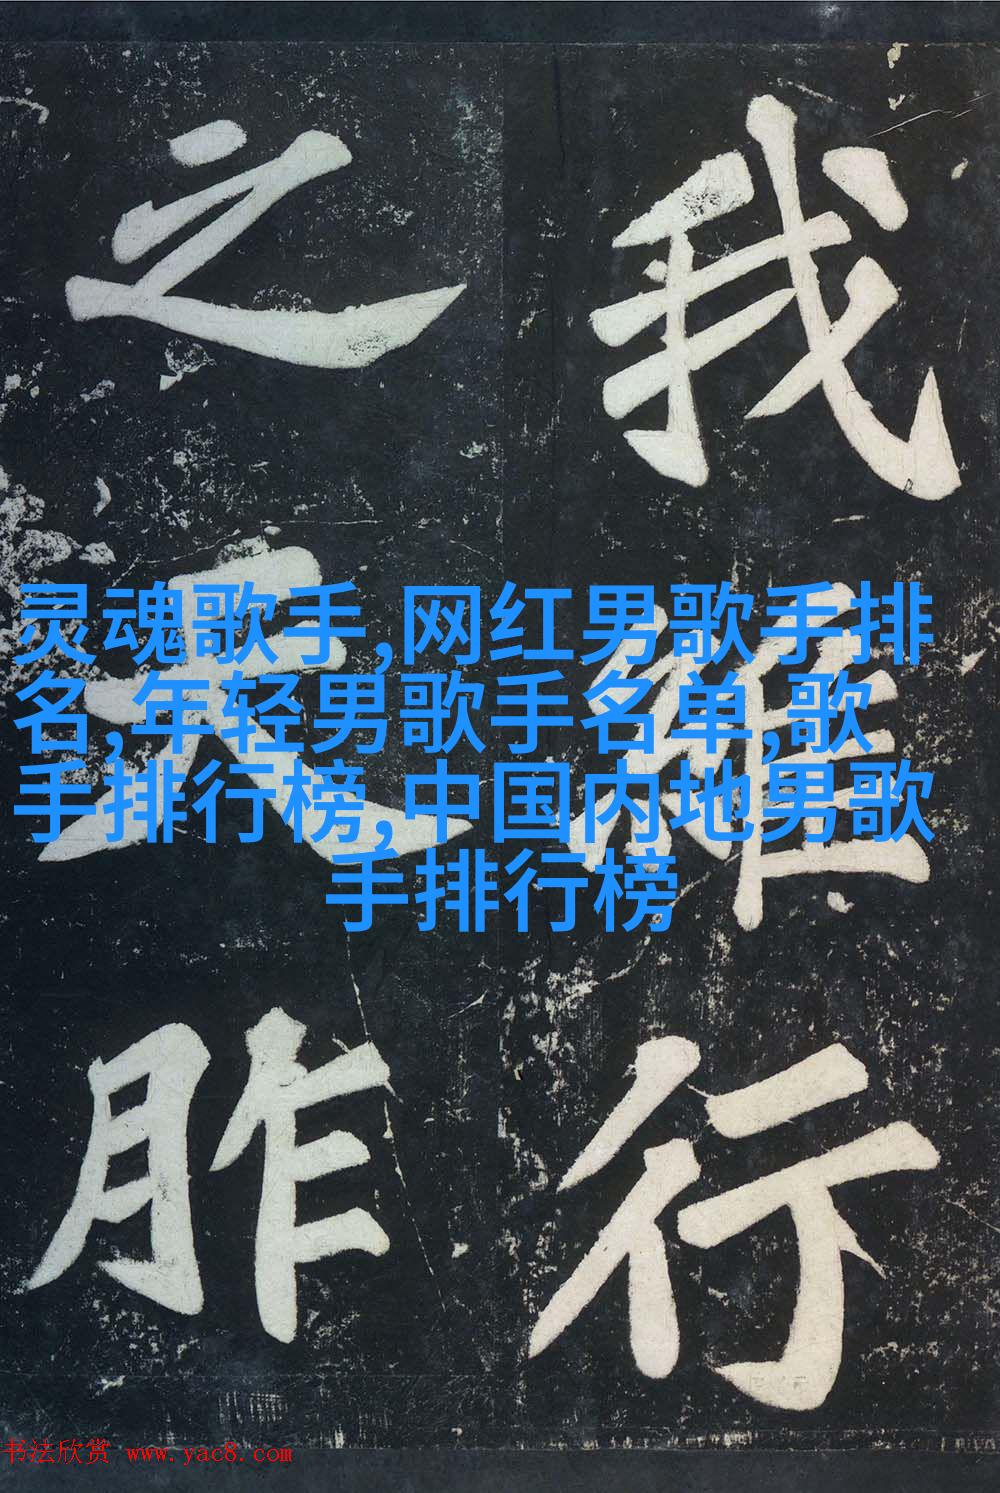 我行
之天胙
灵魂歌手,网红男歌手排
名,年轻男歌手名单,歌
手排行榜,中国内地男歌
手排行榜
书法欣赏 www.yac8.com